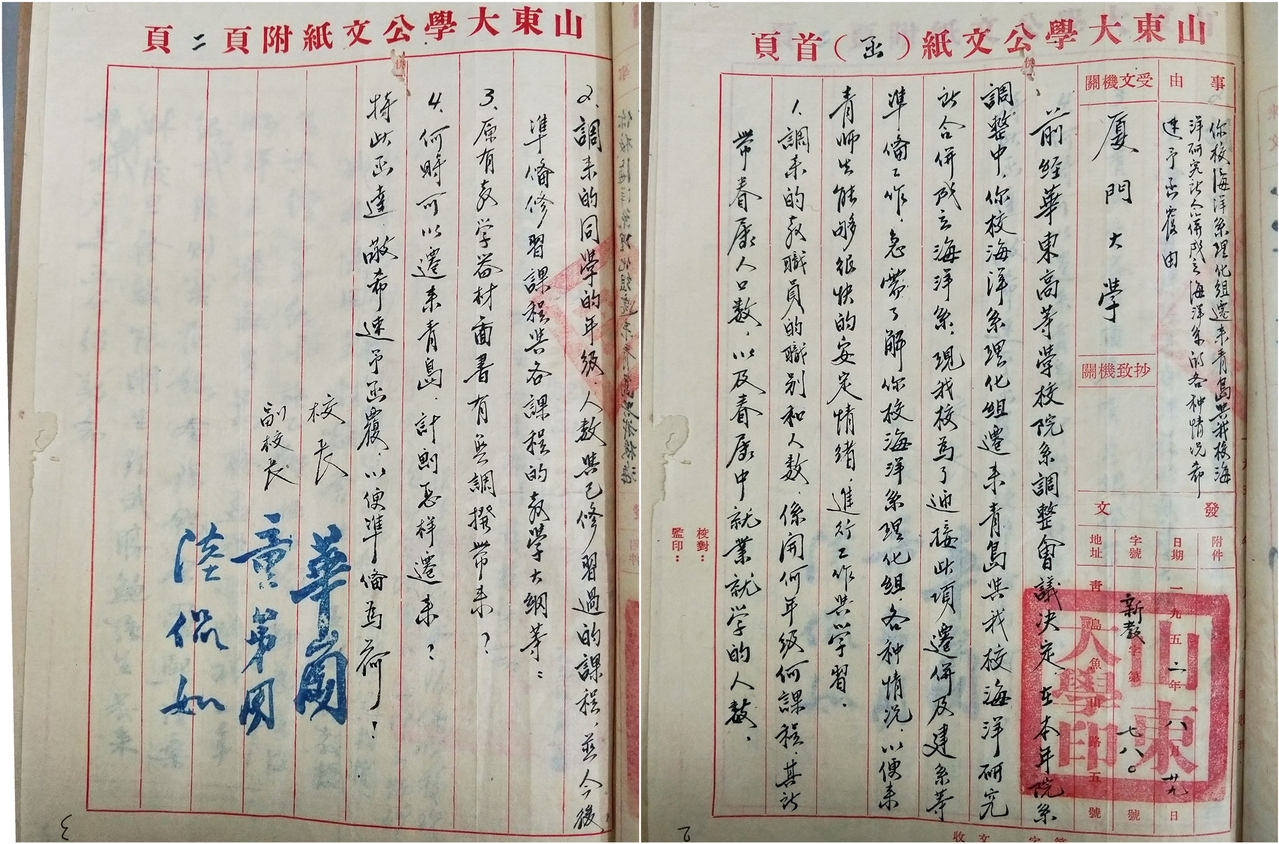 山東大學公文紙（函）首頁
事由
你校海洋系理化組遷來青島與我校海
洋研究所合併成立海洋系的各种情况希
速予函覆由
受文機關
厦門大學
抄致機關
發文
附件
日期 一九五二年八月廿九日
字號 新教字第七八〇號
地址 青島魚山路五號
山東大學印
前經華東高等學校院系調整會議决定，在本年院系
調整中，你校海洋系理化組遷來青島與我校海洋研究
所合併成立海洋系，現我校為了迎接此項遷併及建系等
準備工作，急需了解你校海洋系理化組各种情况，以便來
青師生能够很快的安定情緒，進行工作與学習。
1.調來的教職員的職别和人数，係開何年級何課程，其所
帶眷属人口數，以及眷属中就業就学的人数。
校對：
監印：
山東大學公文紙附頁 二頁
2.調來的同學的年級、人数與已修習過的課程，並今後
準備修習課程與各課程的教學大綱等：
3.原有教学器材圖書有無調撥帶來？
4.何時可以遷來青島，計劃怎样遷來？
特此函達，敬希速予函覆，以便準備為荷！
校長 華崗
副校長 童第周
陸侃如